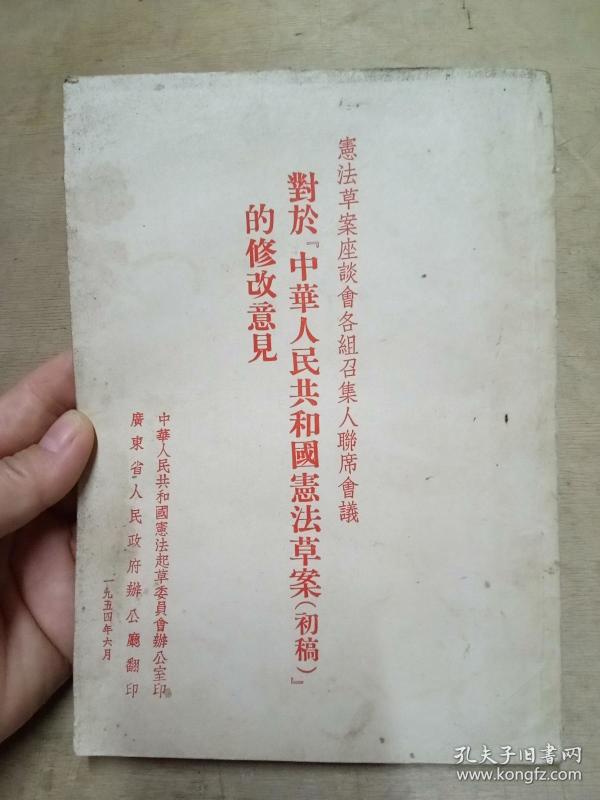 憲法草案座談會各組召集人聯席會議
對於『中華人民共和國憲法草案(初稿)』
的修改意見
中華人民共和國憲法起草委員會辦公室印
廣東省人民政府辦公廳翻印
一九五四年六月
孔夫子旧书网
www.kongfz.com